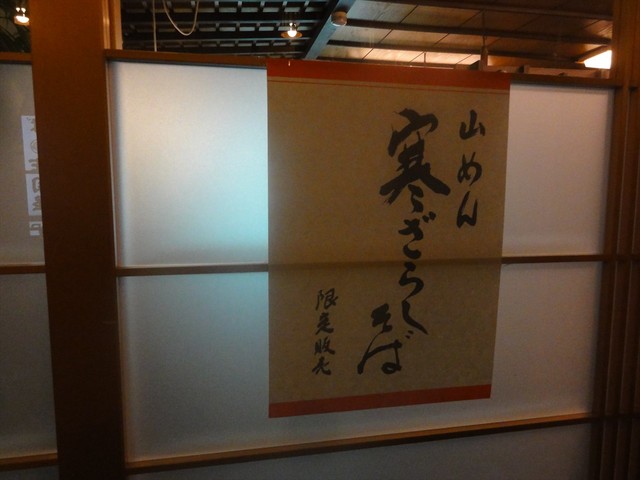 山めん
寒ざらし
そば
限定販売